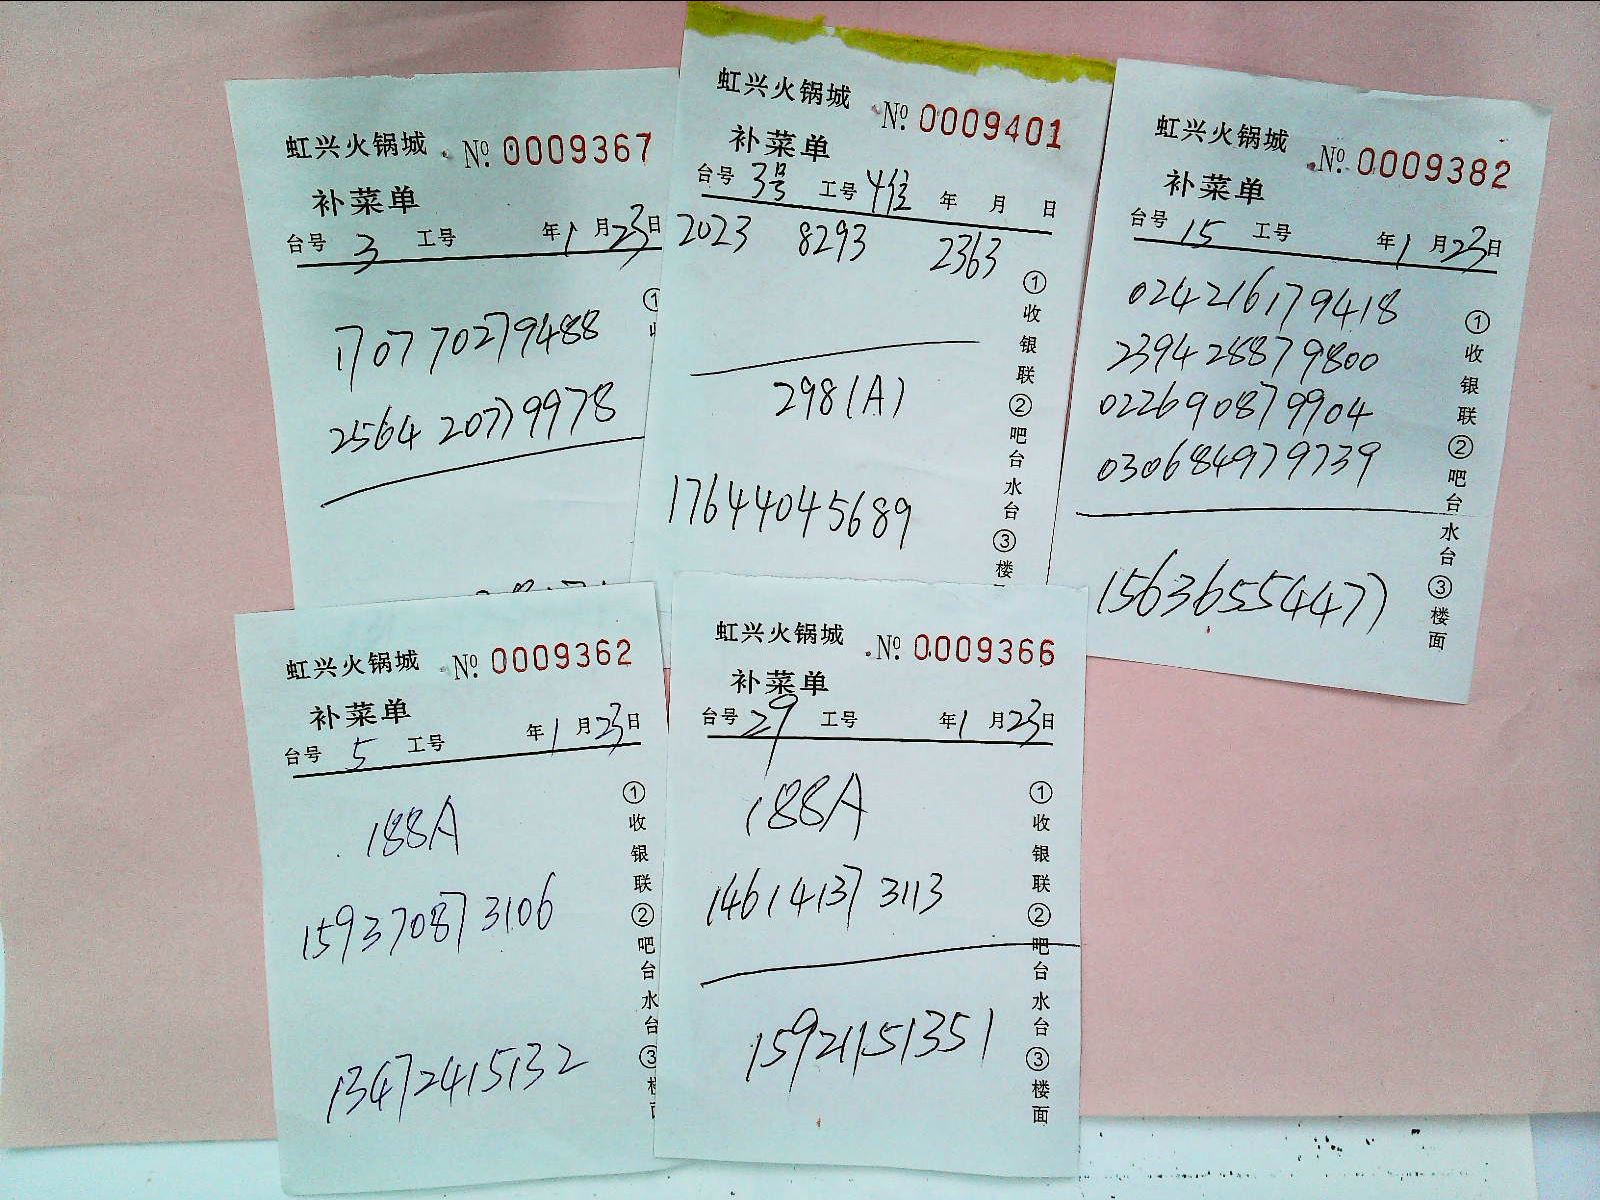 虹兴火锅城 No. 0009367
补菜单
台号 3 工号 年 1 月 23 日
170770279488
2564 20779978
①收
虹兴火锅城 No. 0009401
补菜单
台号 3号 工号 4位 年 月 日
2023 8293 2363
298(A)
17644045689
①收银联②吧台水台③楼
虹兴火锅城 No. 0009382
补菜单
台号 15 工号 年 1 月 23 日
024216179418
239428879800
022690879904
030684979739
15636554477
①收银联②吧台水台③楼面
虹兴火锅城 No. 0009362
补菜单
台号 5 工号 年 1 月 23 日
188A
159370873106
13472415132
①收银联②吧台水台③楼面
虹兴火锅城 No. 0009366
补菜单
台号 29 工号 年 1 月 23 日
188A
14614137 3113
15921151351
①收银联②吧台水台③楼面